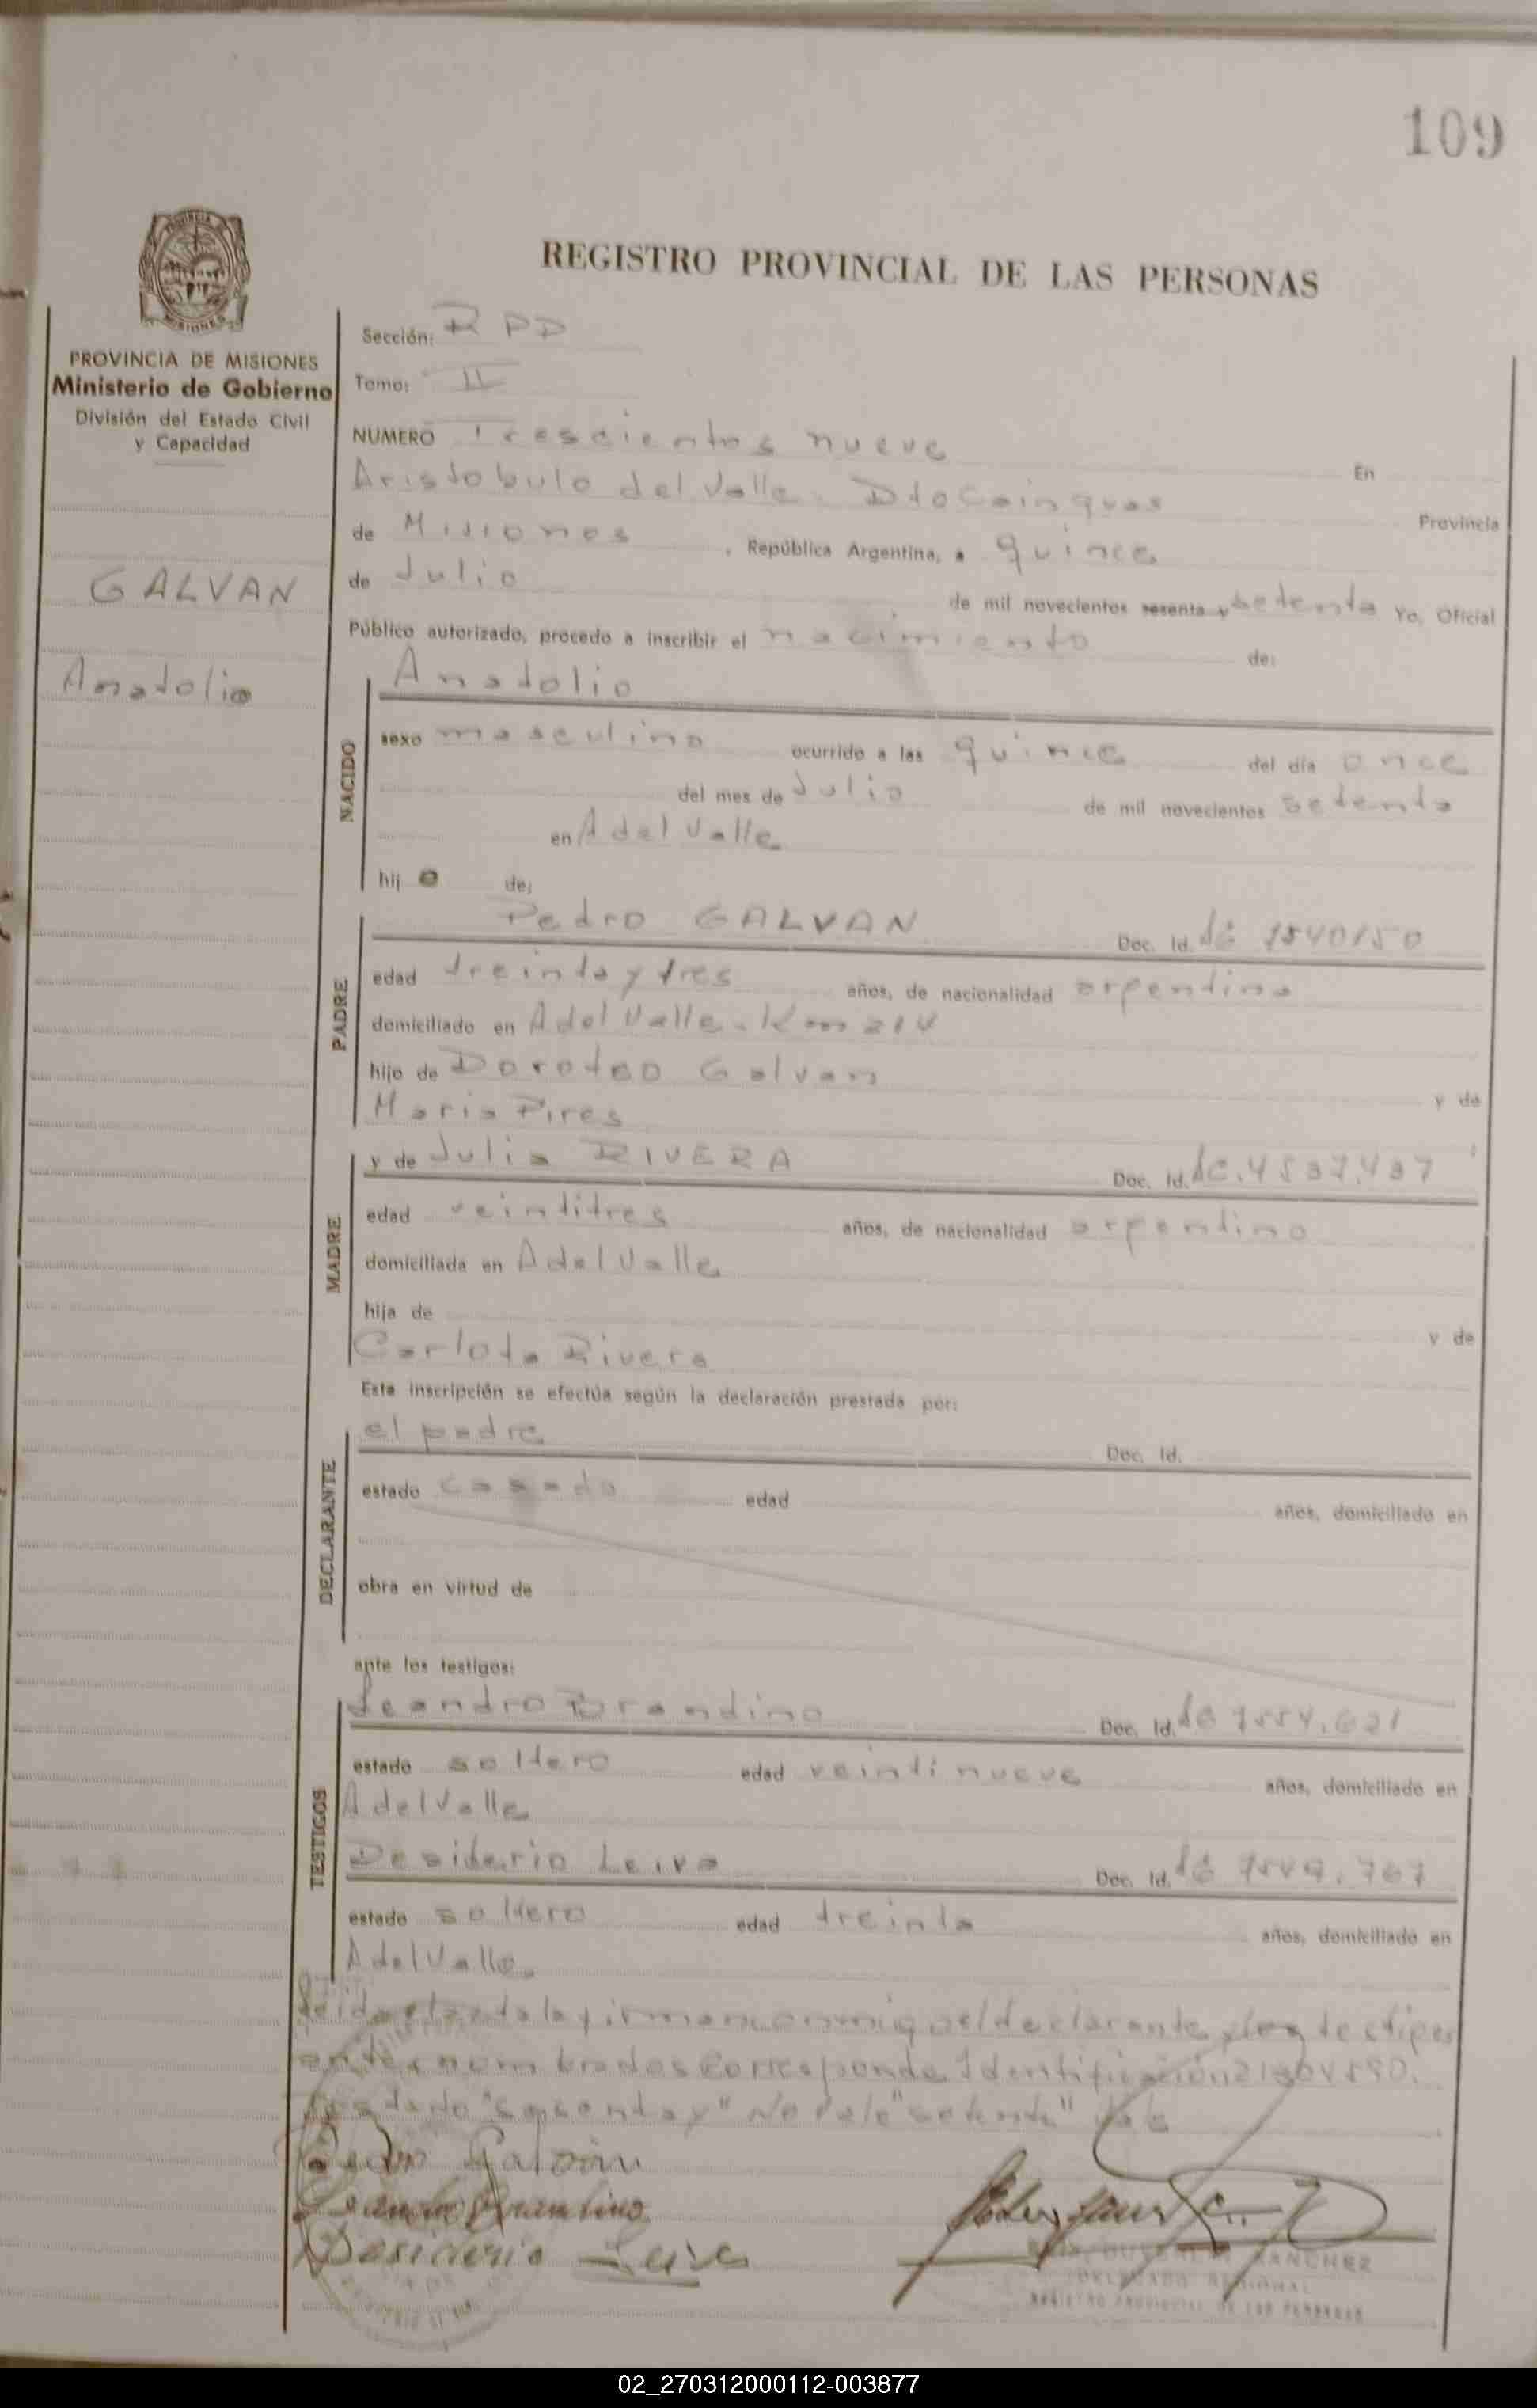 109
REGISTRO PROVINCIAL DE LAS PERSONAS
PROVINCIA DE MISIONES
Ministerio de Gobierno
División del Estado Civil
y Capacidad
GALVAN
Anatolio
Sección: R P D
Tomo: II
NUMERO Trescientos nueve En
Aristobulo del Valle. Dto Cainguas Provincia
de Misiones, República Argentina, a quince
de Julio de mil novecientos sesenta y setenta Yo, Oficial
Público autorizado, procedo a inscribir el nacimiento de:
Anatolio
NACIDO
sexo masculino ocurrido a las quince del día once
del mes de Julio de mil novecientos setenta
en A del Valle
hij o de:
PADRE
Pedro GALVAN Doc. Id.
edad treinta y tres años, de nacionalidad argentina
domiciliado en A del Valle. Km 214
hijo de Doroteo Galvan y de
Maria Pires
MADRE
y de Julia RIVERA Doc. Id.
edad veintitres años, de nacionalidad argentina
domiciliada en A del Valle
hija de y de
Carlota Rivera
Esta inscripción se efectúa según la declaración prestada por:
DECLARANTE
el padre Doc. Id.
estado casado edad años, domiciliado en
obra en virtud de
ante los testigos:
TESTIGOS
Leandro Brandino Doc. Id.
estado soltero edad veintinueve años, domiciliado en
A del Valle
Desiderio Leiva Doc. Id.
estado soltero edad treinta años, domiciliado en
A del Valle
Leida el acta la firman conmigo el declarante y los testigos
antes nombrados Corresponde Identificación
Testado "sesenta y" No Vale "setenta" Vale
Pedro Galván
Leandro Brandino
Desiderio Leiva
SANCHEZ
DELEGADO REGIONAL
REGISTRO PROVINCIAL DE LAS PERSONAS
02_270312000112-003877